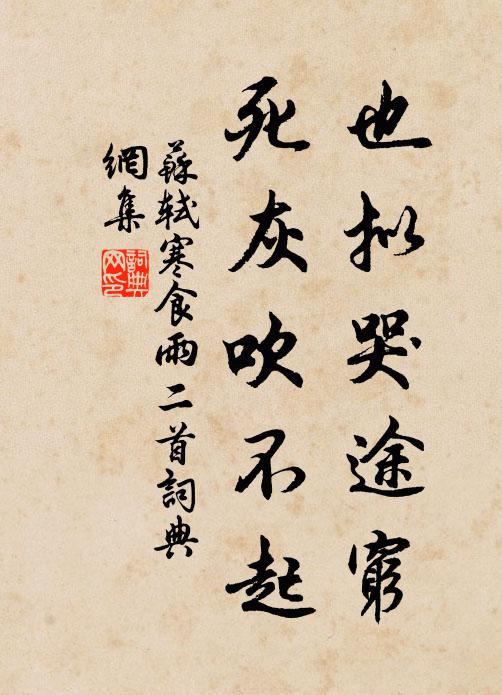 也拟哭途窮
死灰吹不起
蘇軾寒食雨二首詞典
網集
詞典
网印